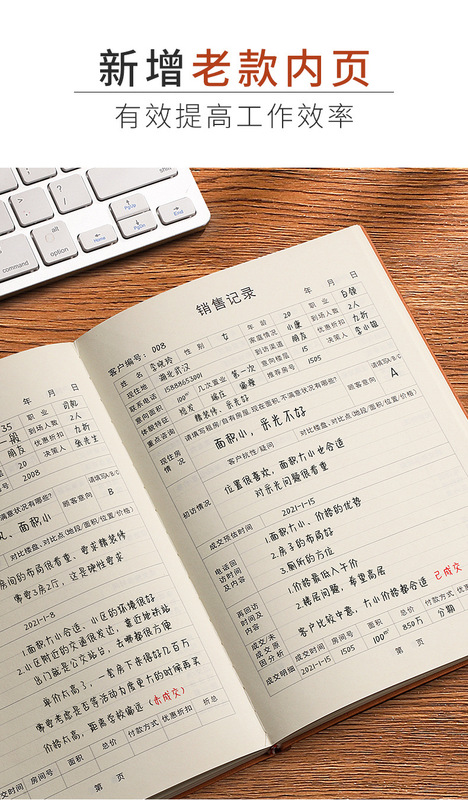 新增老款内页
有效提高工作效率
command
alt
option
Home
PgUp
PgDn
End
销售记录
年 月 日
客户编号: 008
姓名 李晓玲 性别 女 年龄 20 职业 白领
现住地 湖北武汉 家庭情况 小康 到场人数 2人
联系电话 15888653001 到访渠道 朋友 优惠折扣 九折
意向面积 100m² 几次置业 第一次 意向楼层 15 决策人 李小姐
体貌特征 推荐房号 1505
重点咨询 精装修,采光好
现住房情况
请填写租房/自有房屋,现在面积,不满意状况有哪些?
顾客意向
请填写A/B/C
A
面积小,采光不好
客户抗性/疑问
对比楼盘,对比点(地段/面积/位置/价格)
初访情况
位置很喜欢,面积大小也合适
对采光问题很看重
成交预估时间
2021-1-15
电话回访时间及内容
1.面积大小、价格的优势
2.房子的布局好
3.厕所的方位
再回访时间及内容
1.价格最低八千价
2.楼层问题,希望高层
成交/未成交原因分析
客户比较中意,大小价格都合适 已成交
成交明细
成交时间 房间号 面积 总价 付款方式 优惠折扣
2021-1-15 1505 100m² 850万 分期
第 页
年 月 日
35 职业 司机
到场人数 2人
朋友 优惠折扣 九折
20 决策人 朱先生
2008
不满意状况有哪些?
顾客意向
请填写A/B/C
B
面积小
对比楼盘,对比点(地段/面积/位置/价格)
房间的布局很看重,要求精装修
需要3房2厅,这是硬性要求
2021-1-8
1.面积大小合适,小区的环境很好
2.小区附近的交通很发达,靠近地铁站
出门就是公交站台,去哪都很方便
单价太高了,一套房下来得好几百万
需要考虑是否等活动力度更大的时候再买
价格太高,距离学校偏远(未成交)
成交时间 房间号 面积 总价 付款方式 优惠折扣 折总
第 页